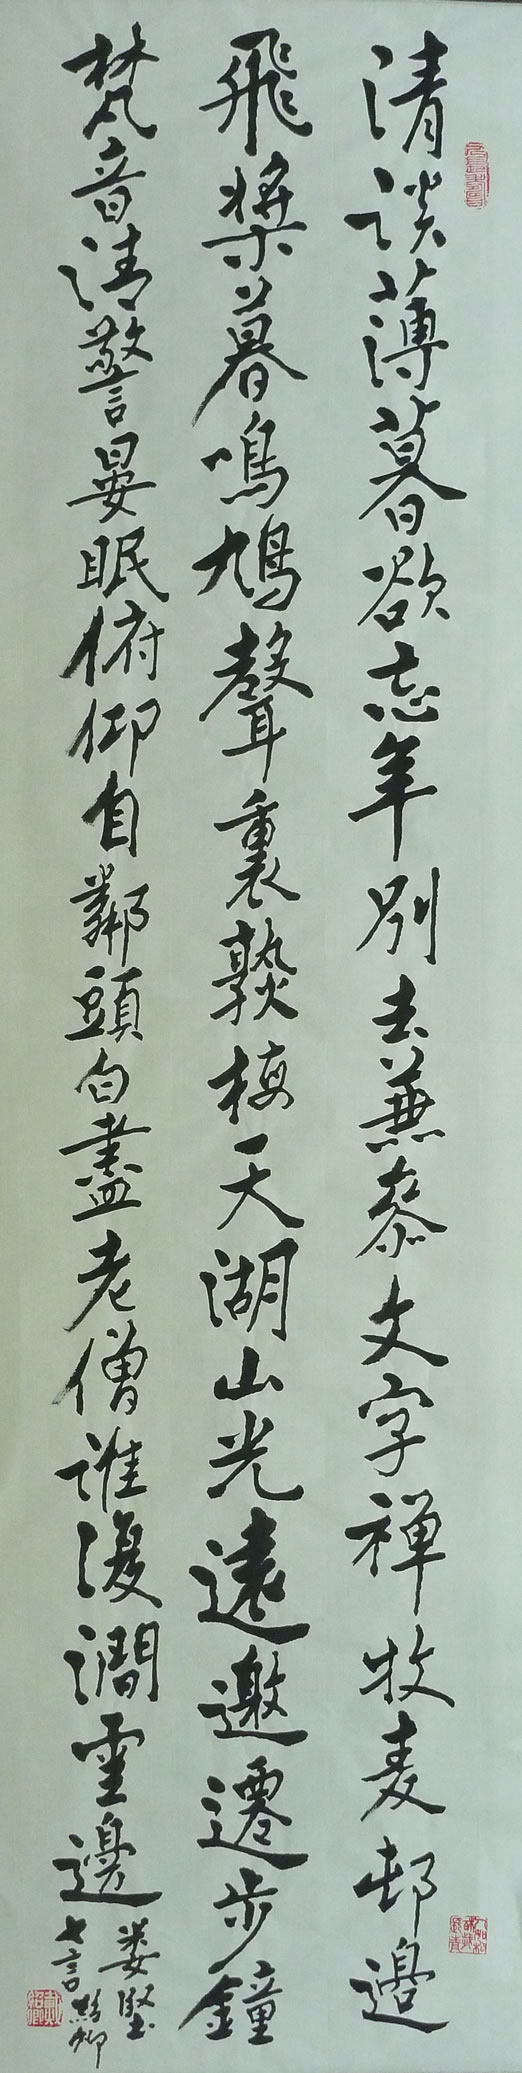 清談薄暮欲忘年別去兼參文字禅牧麦邨邊
飛槳暮鳴鳩聲裏熟梅天湖山光遠邀遷步鐘
梵音清警晏眠俯仰自鄰頭白盡老僧誰復澗雲邊
婁堅
七言